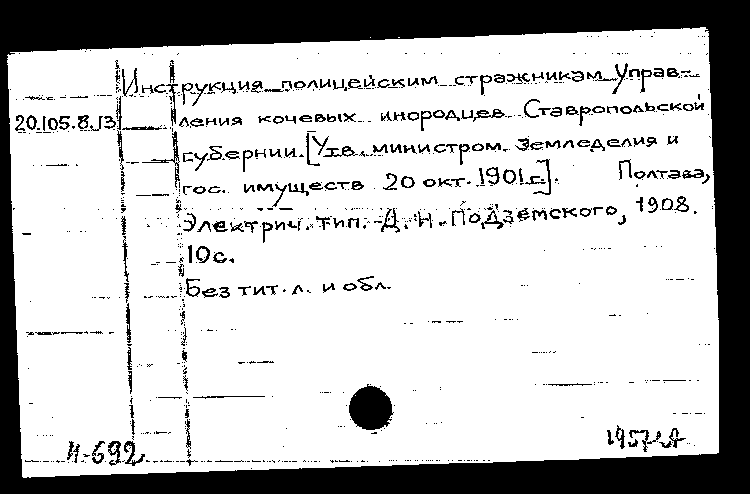 Инструкция полицейским стражникам Управ-
20.105.8.13
ления кочевых инородцев Ставропольской
губернии. [Утв. министром земледелия и
гос. имуществ 20 окт. 1901 г.]. Полтава,
Электрич. тип. Д. Н. Подземского, 1908.
10 с.
Без тит. л. и обл.
И-692